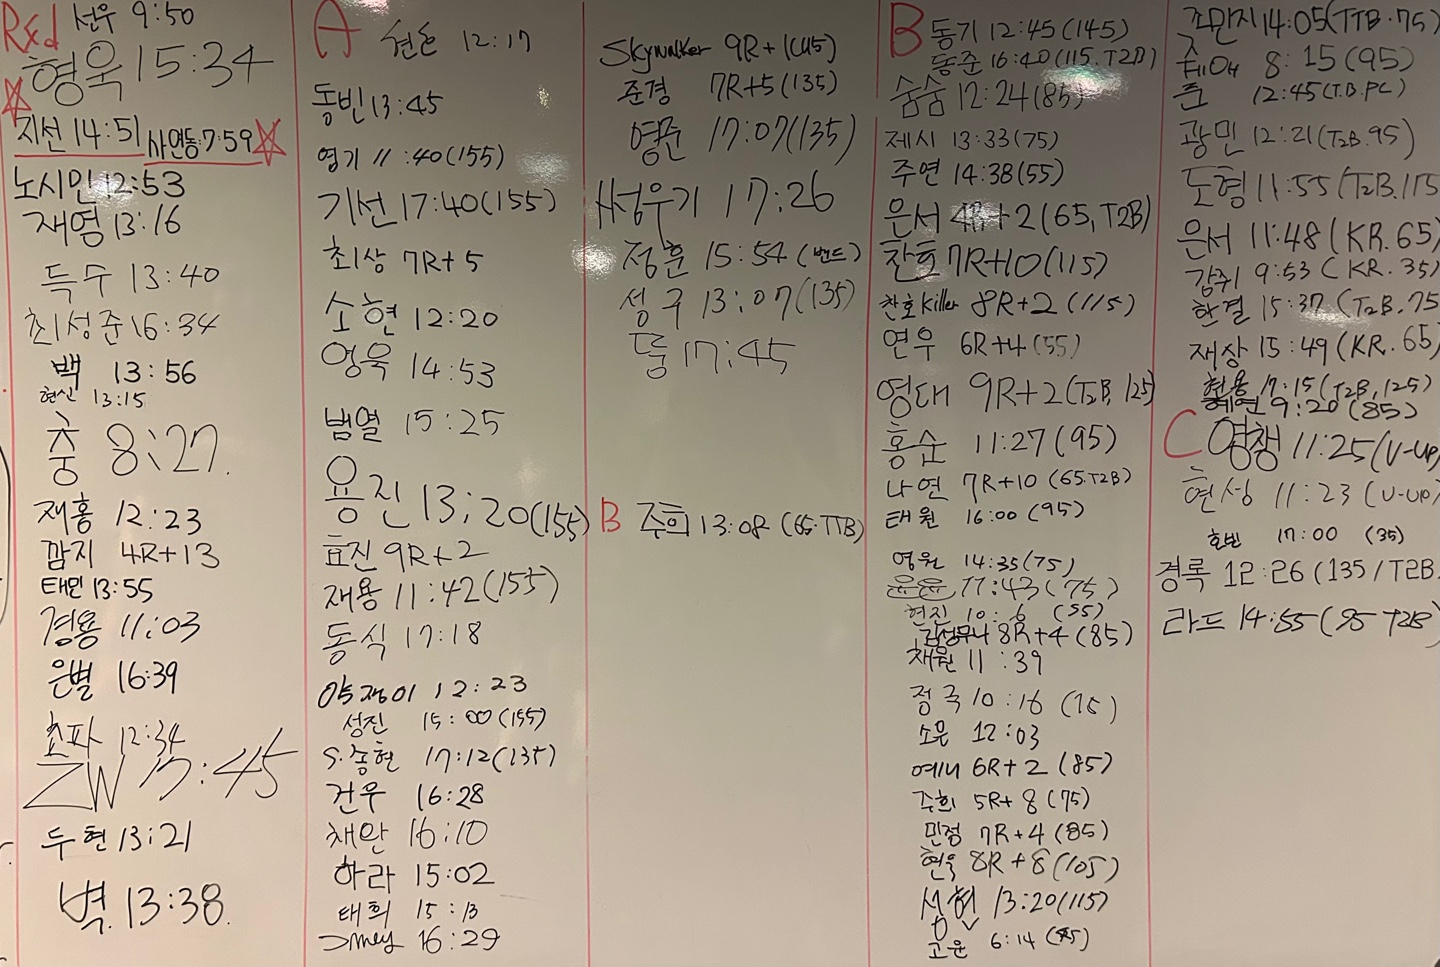 Rxd 선우 9:50
형욱 15:34
지선 14:51 사연동 7:59
노시민 12:53
재영 13:16
득수 13:40
최성준 16:34
백 13:56
현신 13:15
충 8:27.
재홍 12:23
깜지 4R+13
태민 13:55
경용 11:03
은별 16:39
쵸파 12:34
ZW 17:45
두현 13:21
벽. 13:38.
A 12:17
동빈 13:45
영기 11:40(155)
기선 17:40(155)
최상 7R+5
소현 12:20
영욱 14:53
범열 15:25
용진 13:20(155)
효진 9R+2
재용 11:42(155)
동식 17:18
약쟁이 12:23
성진 15:00(155)
S.송현 17:12(135)
건우 16:28
채완 16:10
하라 15:02
태희 15:13
16:29
Skywalker 9R+1(145)
준경 7R+5(135)
영준 17:07(135)
성우기 17:26
정훈 15:54(밴드)
성구 13:07(135)
17:45
B 주희 13:08(65.TTB)
B 동기 12:45(145)
동준 16:40(115.T2B)
숨숨 12:24(85)
제시 13:33(75)
주연 14:38(55)
은서 4R+2(65, T2B)
찬호 7R+10(115)
찬호killer 8R+2(115)
연우 6R+4(55)
영대 9R+2(T2B, 125)
홍순 11:27(95)
나연 7R+10(65.T2B)
태원 16:00(95)
영원 14:35(75)
윤윤 11:43(75)
현진 10:6(55)
김성무나 8R+4(85)
채원 11:39
정국 10:16(75)
소윤 12:03
예니 6R+2(85)
주희 5R+8(75)
민정 7R+4(85)
현욱 8R+8(105)
13:20(115)
고운 6:14
조만지 14:05(TTB.75)
8:15(95)
준 12:45(T.B.PC)
광민 12:21(T2B.95)
도형 11:55(T2B.115
은서 11:48(KR.65)
깜쥐 9:53(KR.35)
한결 15:37(T2B.75
재상 15:49(KR.65)
현용 17:15(T2B,125)
혜연 9:20(85)
C 영챙 11:25(V-up)
현성 11:23(U-UP)
호빈 17:00 (35)
경록 12:26(135/T2B.
라드 14:55(95 T2B)